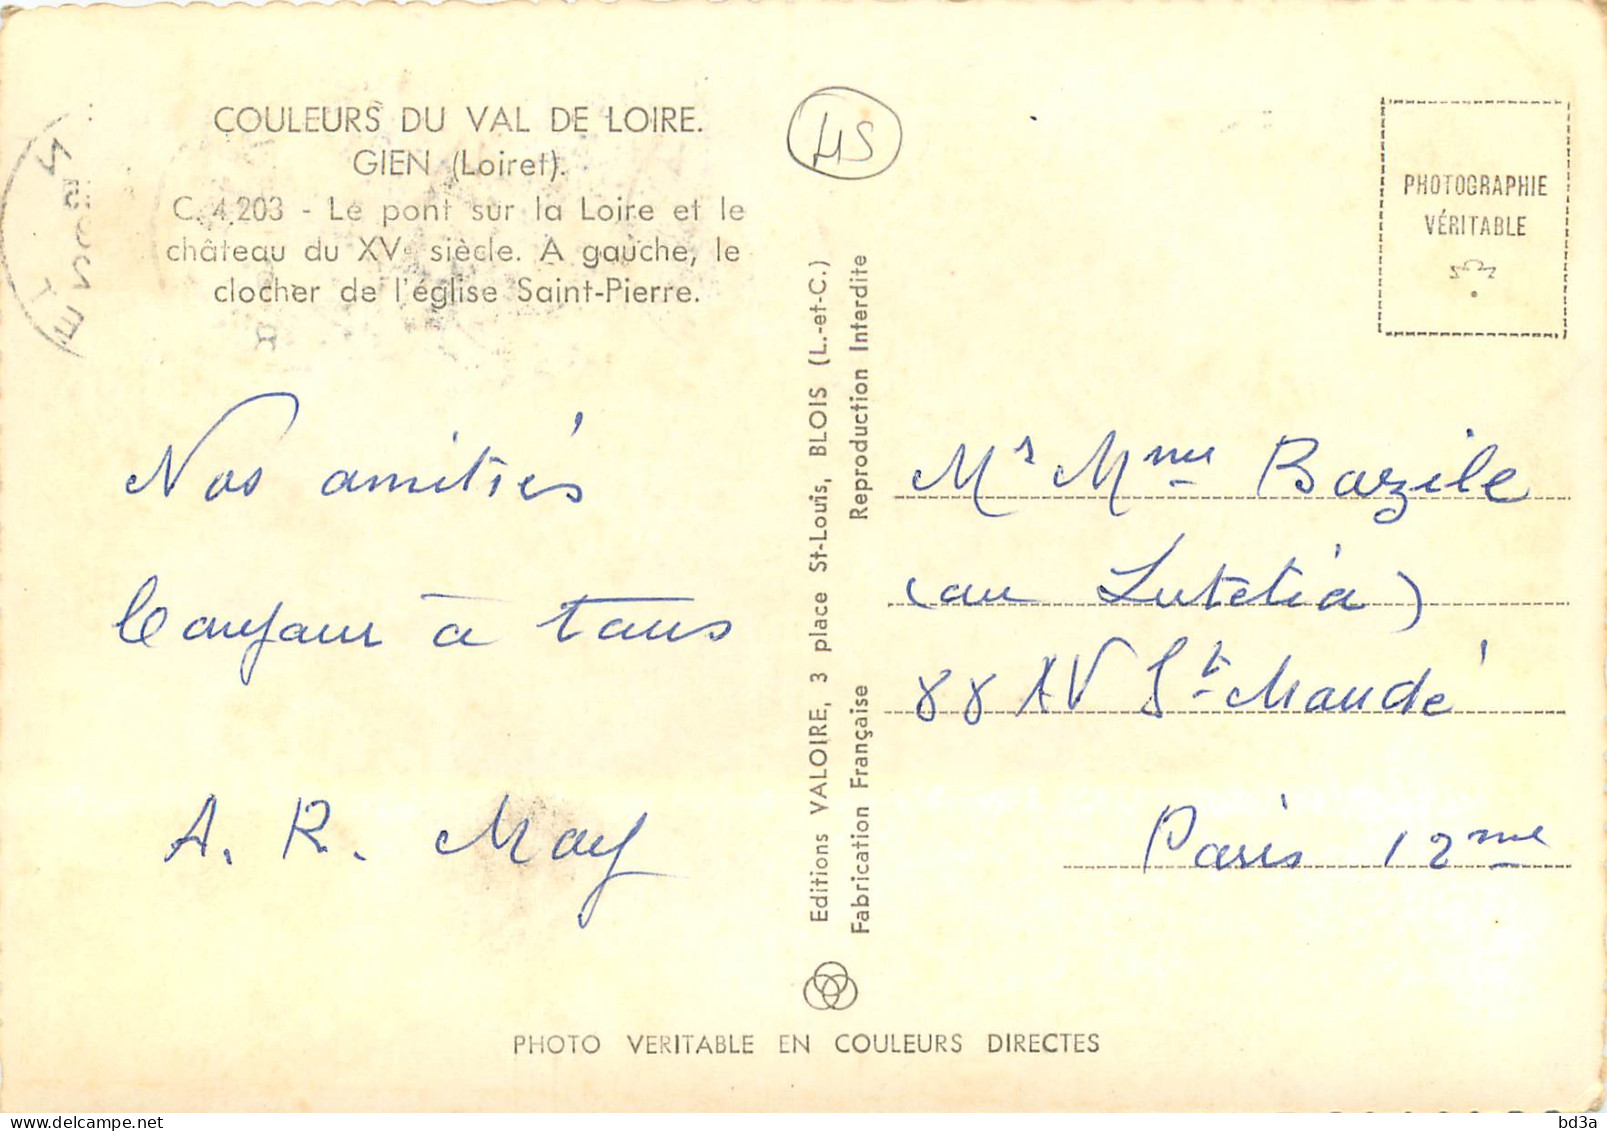 COULEURS DU VAL DE LOIRE.
GIEN (Loiret).
C. 4.203 - Le pont sur la Loire et le
château du XVe siècle. A gauche, le
clocher de l'église Saint-Pierre.
45
PHOTOGRAPHIE
VÉRITABLE
Nos amitiés
Bonjour à tous
A. R. May
Editions VALOIRE, 3 place St-Louis, BLOIS (L.-et-C.)
Fabrication Française Reproduction Interdite
Mr Mme Bazile
(au Lutetia)
88 AV St Mandé
Paris 12me
PHOTO VERITABLE EN COULEURS DIRECTES
bd3a